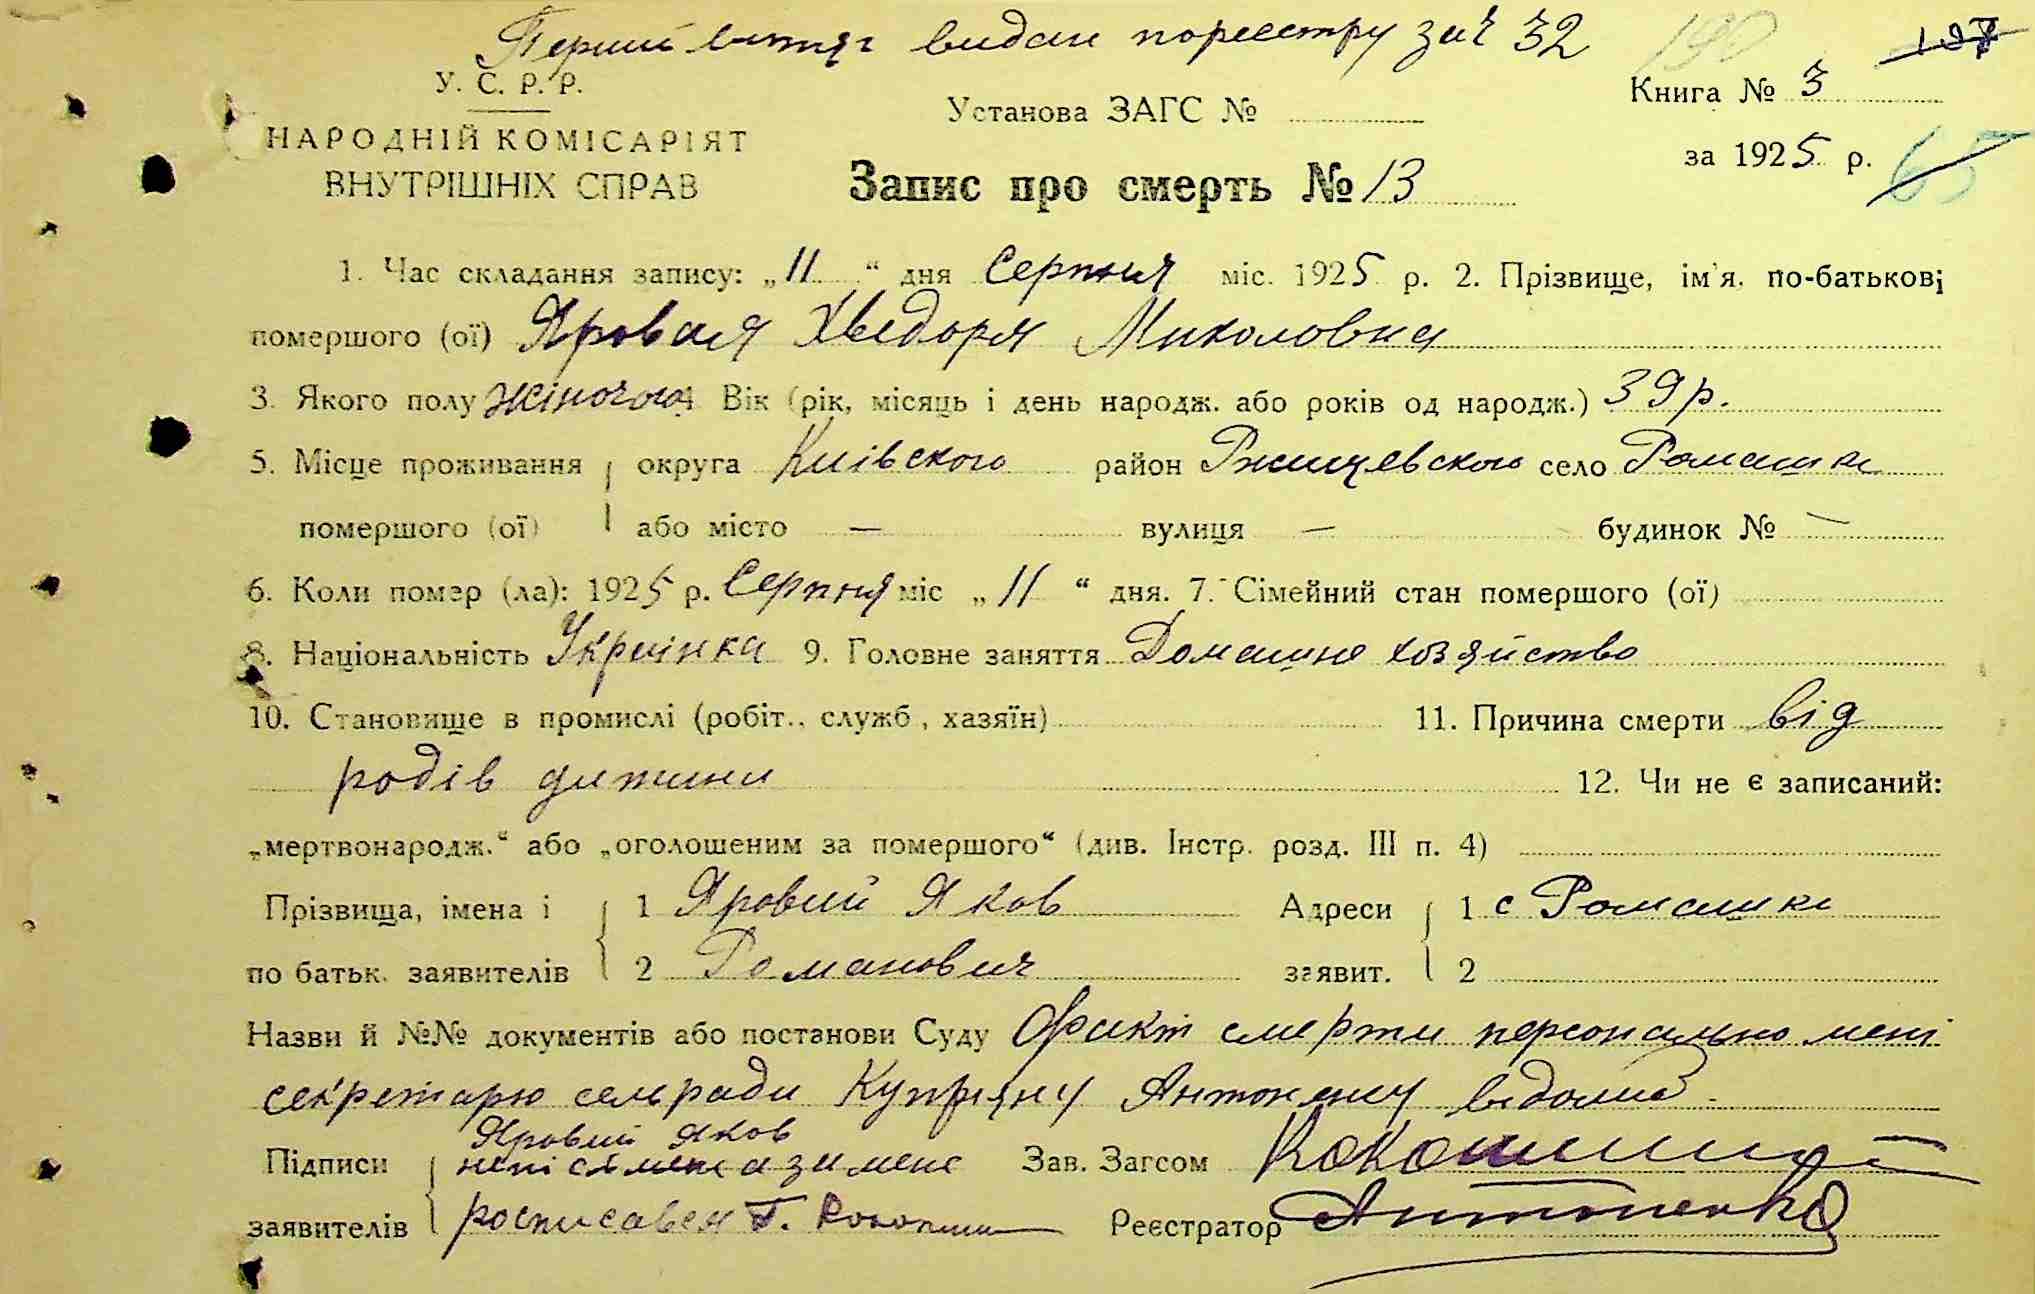 Перший витяг видан пореєстру за № 32
190 197
У. С. Р. Р.
НАРОДНІЙ КОМІСАРІЯТ
ВНУТРІШНІХ СПРАВ
Установа ЗАГС №
Книга № 3
за 1925 р.
65
Запис про смерть № 13
1. Час складання запису: „11“ дня Серпня міс. 1925 р. 2. Прізвище, ім'я, по-батькові
помершого (ої) Яровая Хведоря Миколовна
3. Якого полу жіночого 4 Вік (рік, місяць і день народж. або років од народж.) 39 р.
5. Місце проживання округа Київского район Ржищевского село Ромашки
помершого (ої) або місто — вулиця — будинок № —
6. Коли помер (ла): 1925 р. Серпня міс „11“ дня. 7. Сімейний стан помершого (ої)
8. Національність Українка 9. Головне заняття Домашнє хозяйство
10. Становище в промислі (робіт., служб, хазяїн) 11. Причина смерти від
родів дитини 12. Чи не є записаний:
„мертвонародж.“ або „оголошеним за помершого“ (див. Інстр. розд. III п. 4)
Прізвища, імена і 1 Яровий Яков Адреси 1 с Ромашки
по батьк. заявителів 2 Романович заявит. 2
Назви й №№ документів або постанови Суду Факт смерти персонально мені
секретарю сельради Купріяну Антоненку відомий.
Яровий Яков
Підписи а за мене Зав. Загсом
заявителів росписався Реєстратор Антоненко